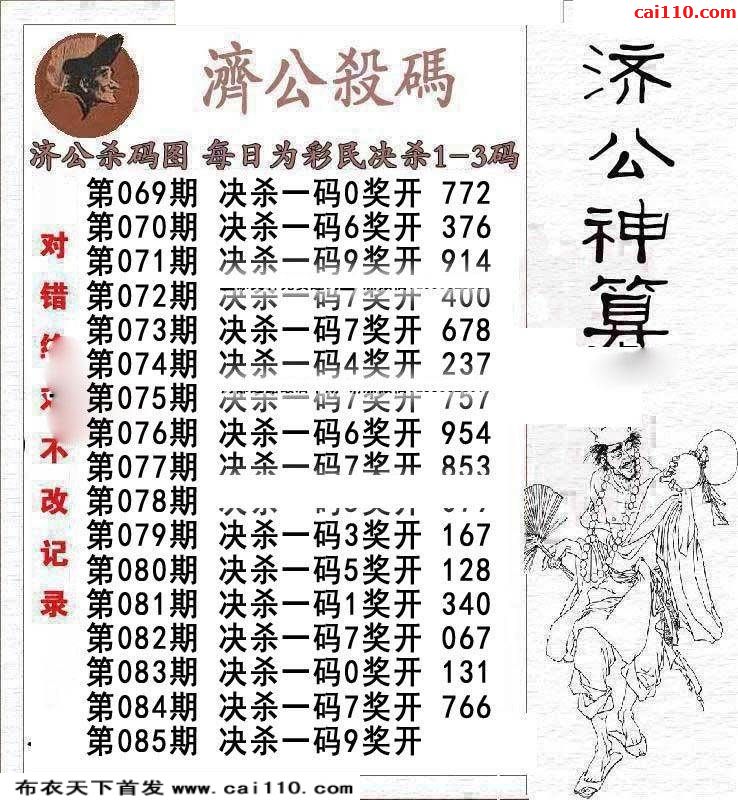 cai110.com
濟公殺碼
济公杀码图 每日为彩民决杀1-3码
第069期 决杀一码0奖开 772
第070期 决杀一码6奖开 376
第071期 决杀一码9奖开 914
第072期 决杀一码7奖开 400
第073期 决杀一码7奖开 678
第074期 决杀一码4奖开 237
第075期 决杀一码7奖开 757
第076期 决杀一码6奖开 954
第077期 决杀一码7奖开 853
第078期
第079期 决杀一码3奖开 167
第080期 决杀一码5奖开 128
第081期 决杀一码1奖开 340
第082期 决杀一码7奖开 067
第083期 决杀一码0奖开 131
第084期 决杀一码7奖开 766
第085期 决杀一码9奖开
对错
不改记录
济公神算
布衣天下首发 www.cai110.com